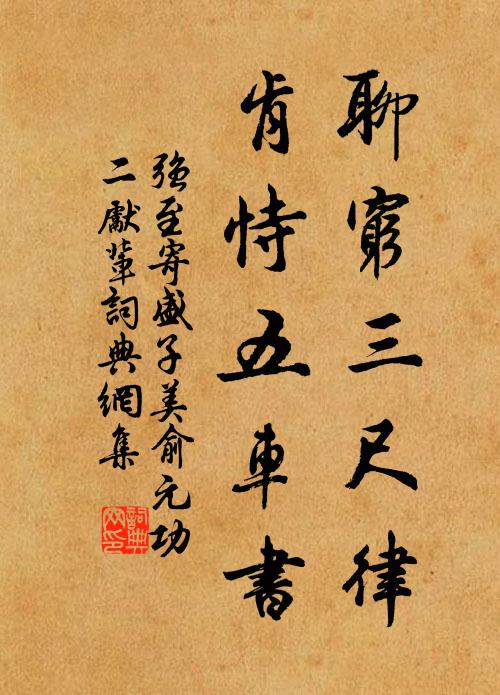 聊窮三尺律
肯恃五車書
強至寄盛子美俞元功
二獻輩詞典網集
詞典
网印